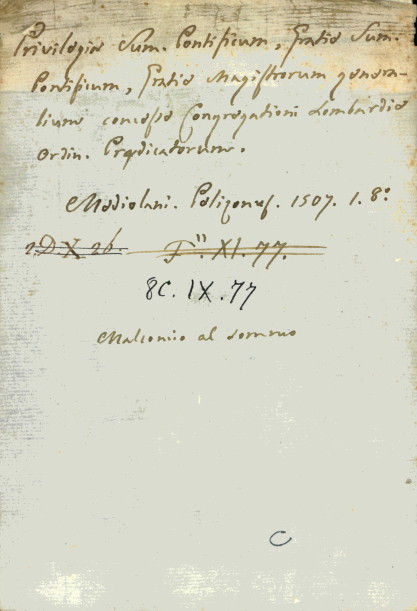 Privilegia Sum. Pontificum, Gratia Sum.
Pontificum, Gratia Magistrorum genera-
lium concessa Congregationi Lombardia
Ordin. Prædicatorum.
Mediolani. 1507. 1. 8.º
2. D X 26. F.'' XI. 77.
8C. IX. 77
Malconcio al sommo
C